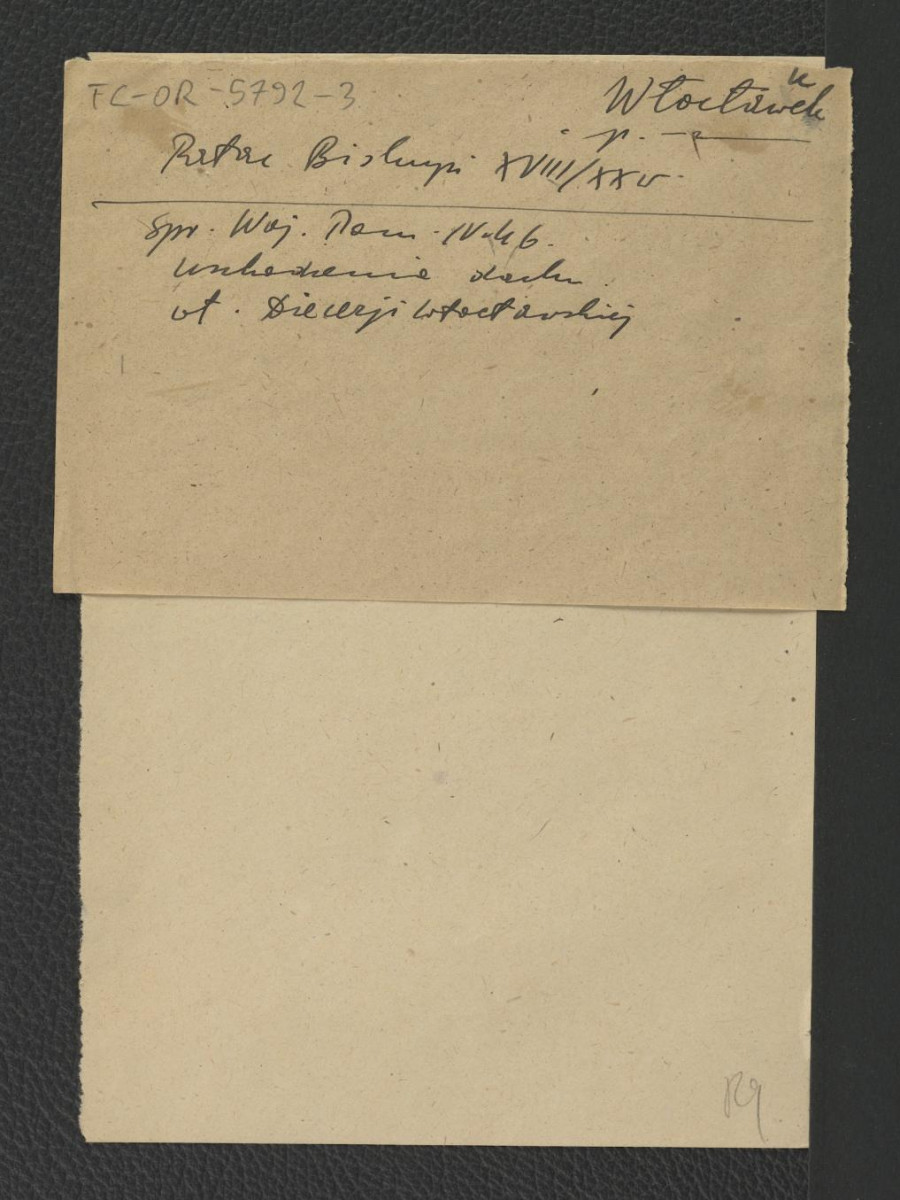 FC-OR-5792-3
Włocławek
p.
Pałac Biskupi XVIII/XX w.
Spr. Woj. Pom. IV.46.
uszkodzenie dachu
wł. Diecezji Włocławskiej